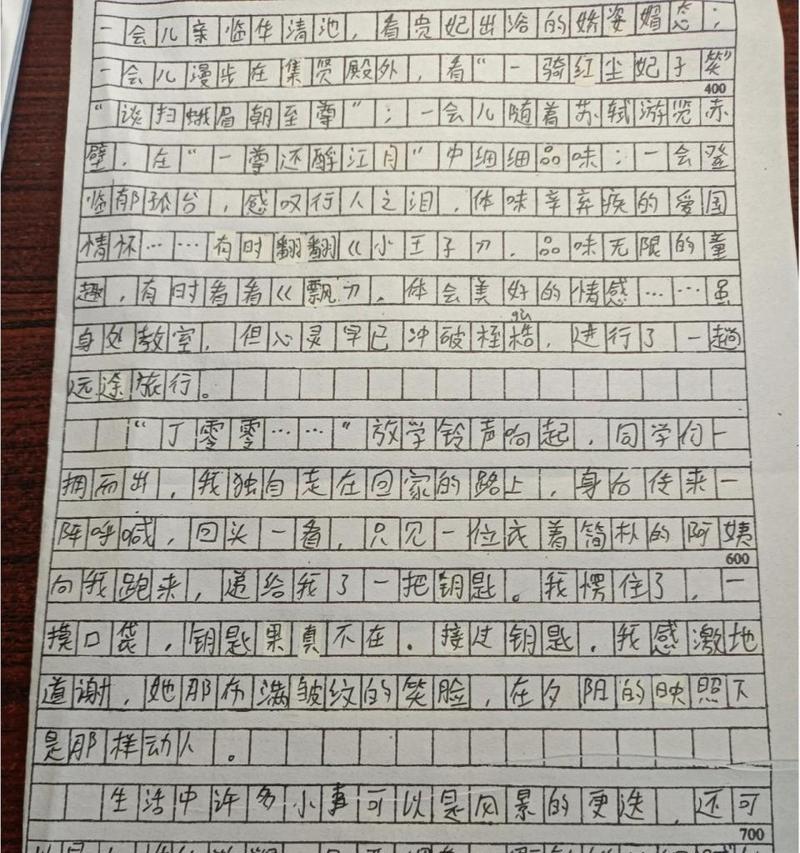 一会儿亲临华清池，看贵妃出浴的娇姿媚态；
一会儿漫步在集贤殿外，看“一骑红尘妃子笑”
400
“谈扫蛾眉朝至尊”；一会儿随着苏轼游览赤
壁，在“一尊还酹江月”中细细品味；一会登
临郁孤台，感叹行人之泪，体味辛弃疾的爱国
情怀……有时翻翻《小王子》，品味无限的童
趣，有时看看《飘》，体会美好的情感……虽
gù
身处教室，但心灵早已冲破桎梏，进行了一趟
远途旅行。
“丁零零……”放学铃声响起，同学们一
拥而出，我独自走在回家的路上，身后传来一
阵呼喊，回头一看，只见一位衣着简朴的阿姨
600
向我跑来，递给我了一把钥匙。我愣住了，一
摸口袋，钥匙果真不在。接过钥匙，我感激地
道谢，她那布满皱纹的笑脸，在夕阳的映照下
是那样动人。
生活中许多小事可以是风景的更迭，还可
700